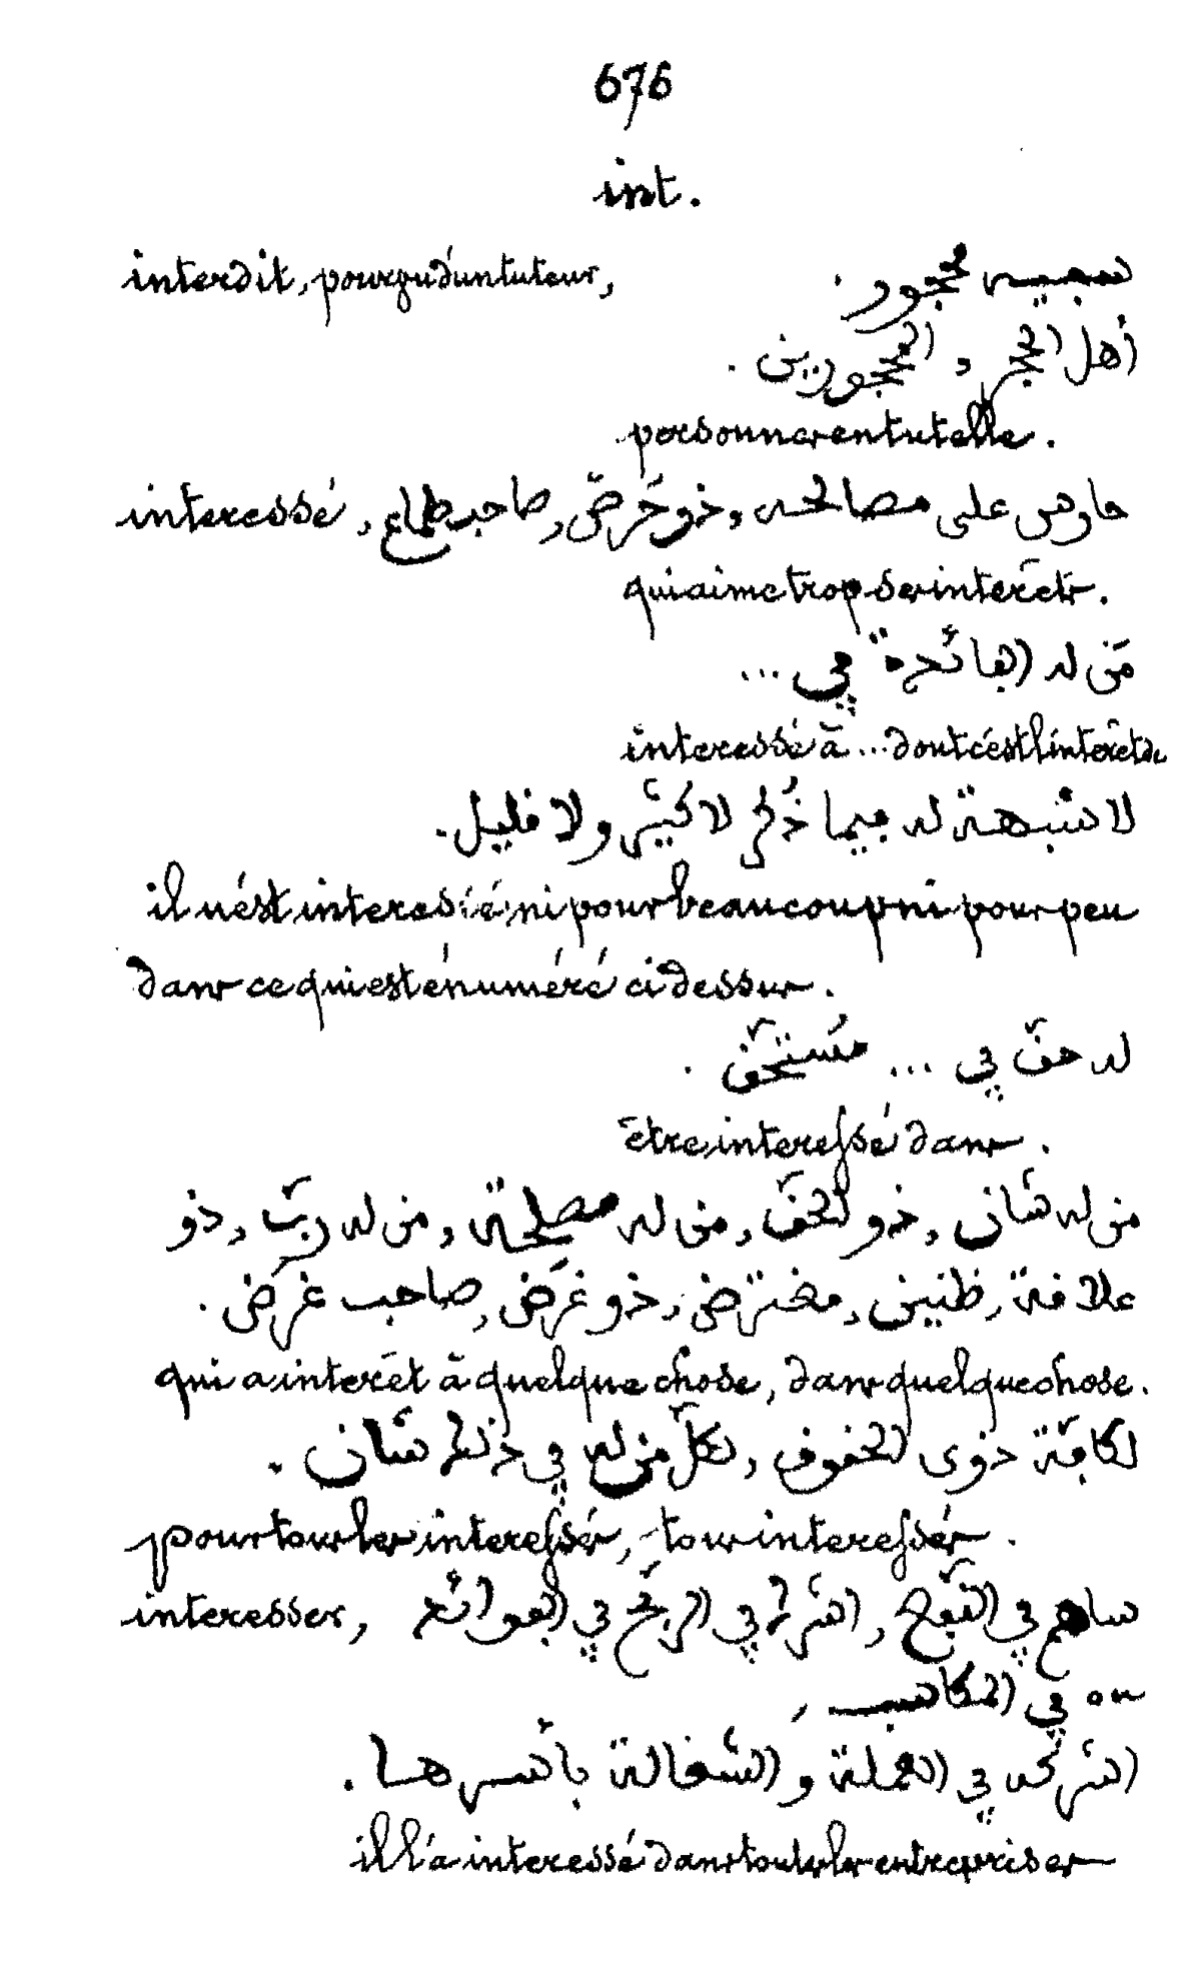 676
int.
interdit, pourvu d'un tuteur, سجيسه محجور .
أهل الحجر و المحجورين .
personnes en tutelle .
interessé, حارص على مصالحه , ذو غرض , صاحب طماع ,
qui aime trop ses interêts .
مَن له الفائدة في ...
interessé à ... dont c'est l'interêt de
لا شبهة له فيما ذُكر لا كثير ولا قليل .
il n'est interessé ni pour beaucoup ni pour peu
dans ce qui est énuméré ci dessus .
له حقّ في ... مُستحقّ .
être interessé dans .
من له شان , ذو الحقّ , من له مصلحة , من له ربّ , ذو
علاقة , ظنين , مفترض , ذو غرَض , صاحب غرَض .
qui a interêt à quelque chose, dans quelque chose .
لكافّة ذوى الحقوق , لكلّ من له في ذلك شان .
pour tous les interessés, tous interessés .
interesser, ساهم في النّفع , اشرك في الربح في الفوائد
ou في المكاسب ,
اشركه في العملة و الشغالة بأسرها .
il l'a interessé dans toutes les entreprises